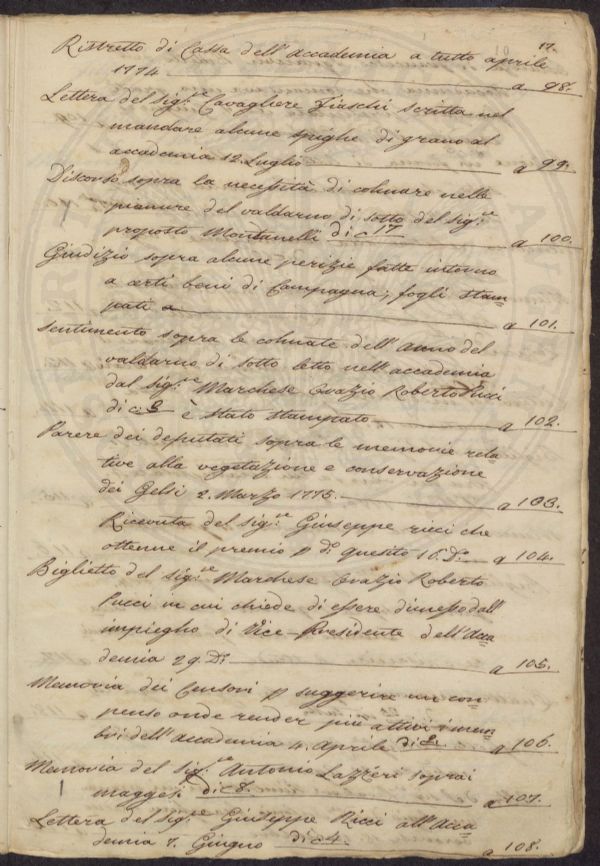 17.
Ristretto di Cassa dell'accademia a tutto aprile
1774 a 98.
Lettera del sig.re Cavagliere Fiaschi scritta nel
mandare alcune spighe di grano al
accademia 12. Luglio a 99.
Discorso sopra la necessità di colmare nelle
pianure del valdarno di sotto del sig.re
proposto Montanelli di c 17 a 100.
Giudizio sopra alcune perizie fatte intorno
a certi beni di Campagna, fogli stam-
pati a 101.
Sentimento sopra le colmate dell'Arno del
valdarno di sotto letto nell'accademia
dal sig.re Marchese Orazio Roberto Pucci
di c 9 è stato stampato a 102.
Parere dei deputati sopra le memorie rela
tive alla vegetazione e conservazione
dei Gelsi 2. Marzo 1775. a 103.
Ricevuta del sig.re Giuseppe ricci che
ottenne il premio p d.o quesito 16. D.o a 104.
Biglietto del sig.re Marchese Orazio Roberto
Pucci in cui chiede di essere dimesso dall'
impiegho di Vice-Presidente dell'Acca
demia 29. D.o a 105.
Memoria dei Censori p suggerire un con-
penso onde render più attivi i mem-
bri dell'Accademia 4. Aprile di c a 106.
Memoria del sig.re Antonio Lazzeri sopra i
maggesi di c 8. a 107.
Lettera del sig.re Giuseppe Ricci all'Acca
demia 7. Giugno di c 4. a 108.